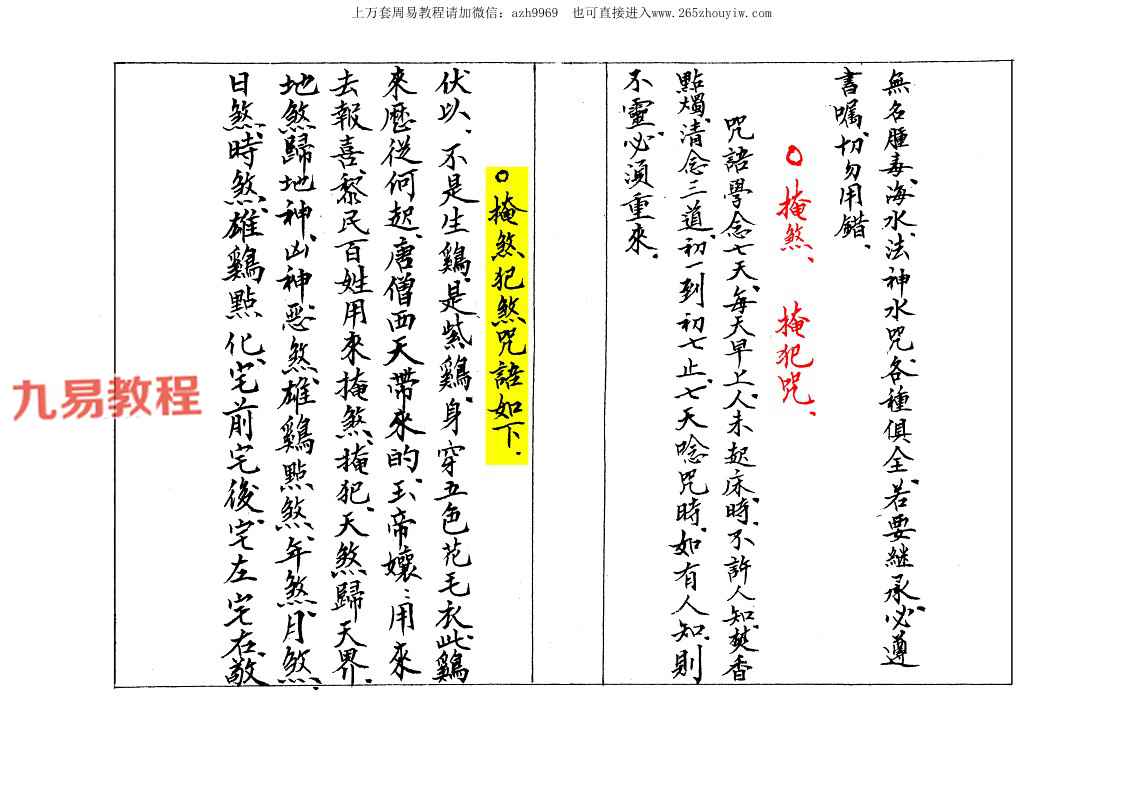 上万套周易教程请加微信：azh9969　也可直接进入www.265zhouyiw.com
無名腫毒、海水、法神水咒各種俱全、若要継承、必遵
書嘱、切勿用錯.
○掩煞、　掩犯咒、
咒語學念七天、每天早上、人未起床時、不許人知、焚香
點燭、清念三道、初一到初七止、七天唸咒時、如有人知、則
不靈、必須重來.
○掩煞犯煞咒語如下.
伏以、不是生鷄、是紫鷄、身穿五色花毛衣、此鷄
來歷從何起、唐僧西天帶來的、玉帝孃：用來
去報喜、黎民百姓用來掩煞、掩犯、天煞歸天界、
地煞歸地神、凶神惡煞、雄鷄點煞、年煞、月煞、
日煞、時煞、雄鷄點化、宅前宅後、宅左宅右、敬
九易教程